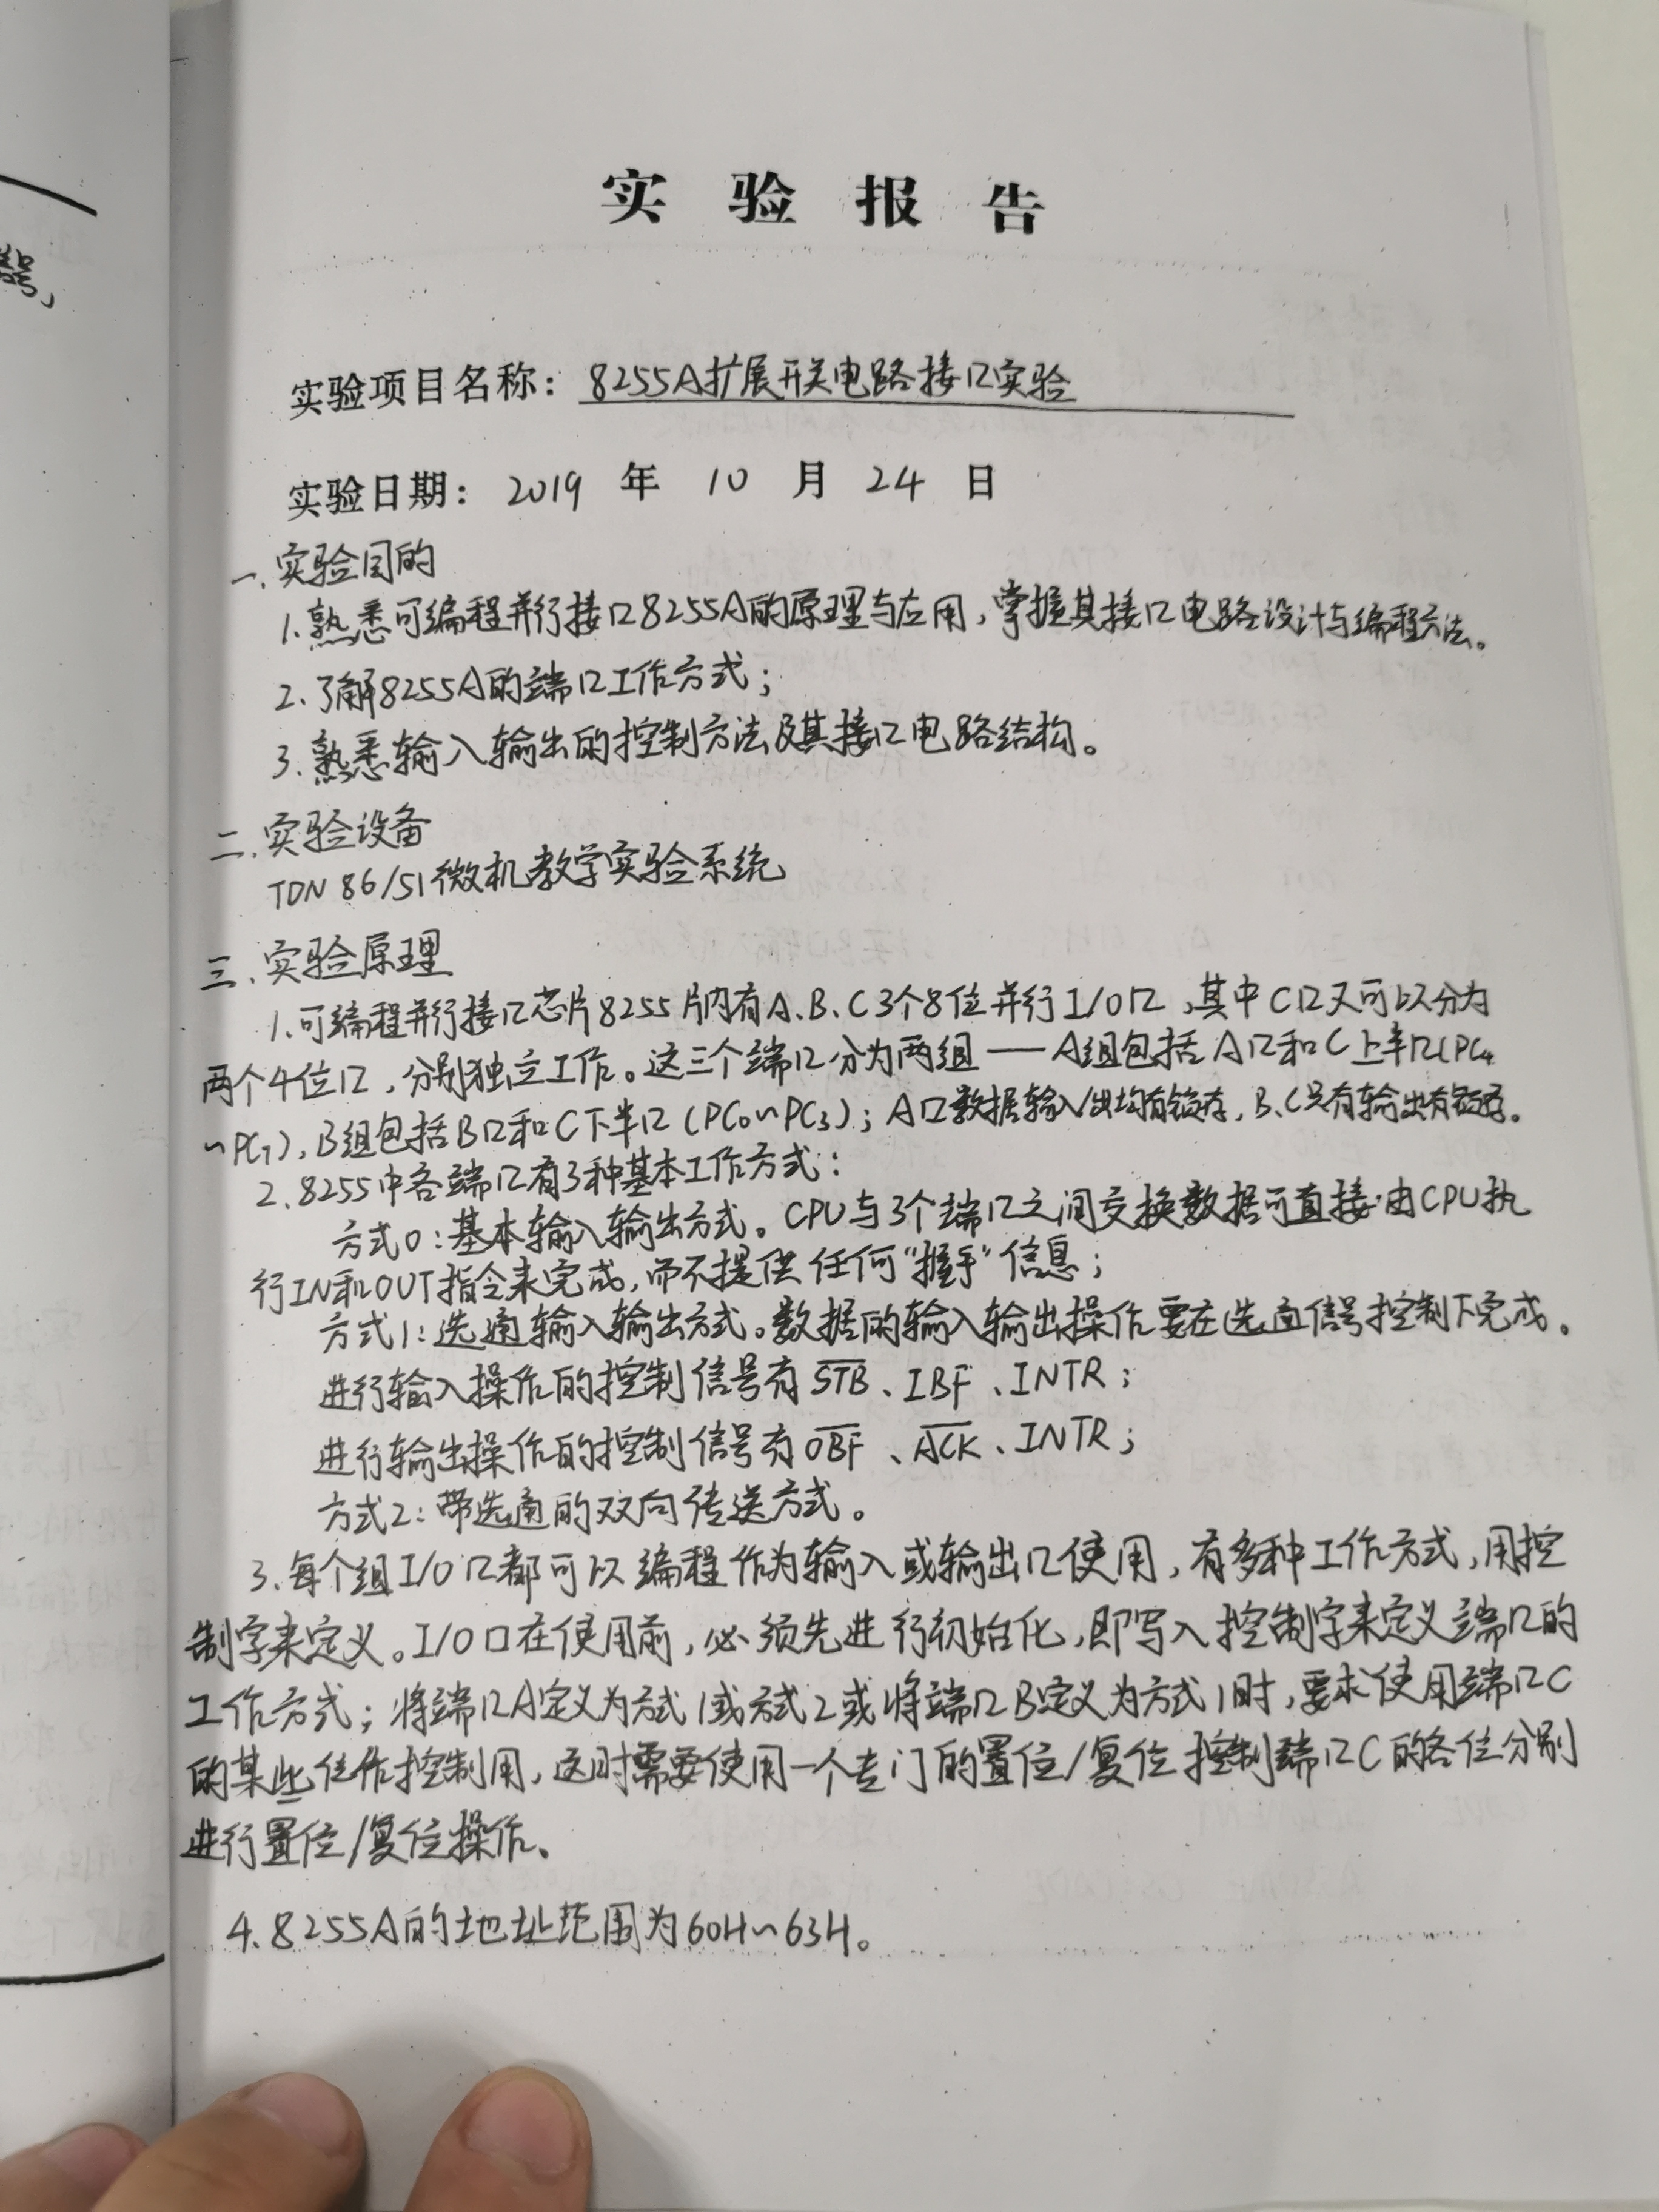 实验报告
实验项目名称：8255A扩展开关电路接口实验
实验日期：2019 年 10 月 24 日
一、实验目的
1.熟悉可编程并行接口8255A的原理与应用，掌握其接口电路设计与编程方法。
2.了解8255A的端口工作方式；
3.熟悉输入输出的控制方法及其接口电路结构。
二.实验设备
TDN 86/51微机教学实验系统
三.实验原理
1.可编程并行接口芯片8255片内有A、B、C 3个8位并行I/O口，其中C口又可以分为
两个4位口，分别独立工作。这三个端口分为两组——A组包括A口和C上半口(PC4
~PC7)，B组包括B口和C下半口(PC0~PC3)；A口数据输入/出均有锁存，B、C只有输出有锁存。
2.8255中各端口有3种基本工作方式：
方式0：基本输入输出方式。CPU与3个端口之间交换数据可直接由CPU执
行IN和OUT指令来完成，而不提供任何“握手”信息；
方式1：选通输入输出方式。数据的输入输出操作要在选通信号控制下完成。
进行输入操作的控制信号有S̅T̅B̅、IBF、INTR；
进行输出操作的控制信号有O̅B̅F̅、A̅C̅K̅、INTR；
方式2：带选通的双向传送方式。
3.每个组I/O口都可以编程作为输入或输出口使用，有多种工作方式，用控
制字来定义。I/O口在使用前，必须先进行初始化，即写入控制字来定义端口的
工作方式；将端口A定义为方式1或方式2或将端口B定义为方式1时，要求使用端口C
的某些位作控制用，这时需要使用一个专门的置位/复位控制端口C的各位分别
进行置位/复位操作、
4.8255A的地址范围为60H~63H。